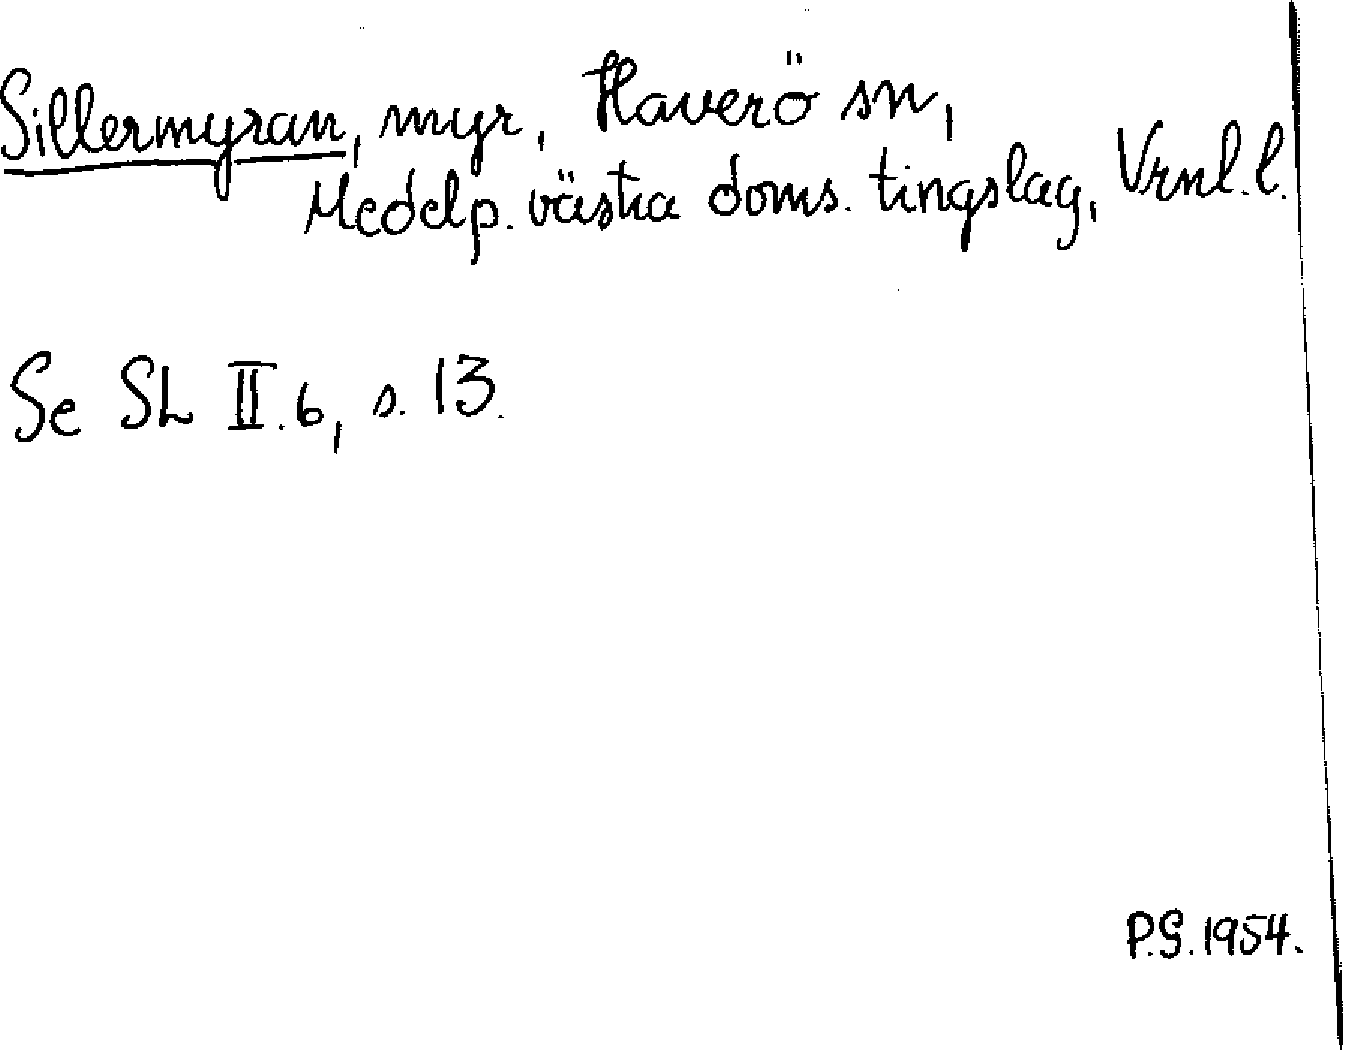 Sillermyran, myr, Haverö sn,
Medelp. västra doms. tingslag, Vrnl. l.
Se SL II.6, s. 13.
P.G. 1954.